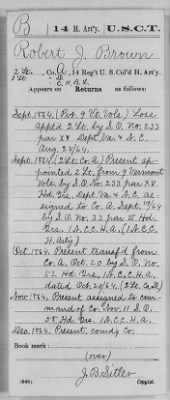 B | 14 H. Art'y. | U.S.C.T.
Robert J. Brown
2 Lt., Co. A, 14 Reg't U.S. Col'd H. Art'y.
1 Lt.
Appears on Returns as follows:
Sept. 1864. (Pvt 9 Vt. Vols)
apptd. 2 Lt. by S.O. No. 233
par XX Dept. Va. & N.C.
Aug. 25/64.
Sept. 1864. (2 Lt. Co. A) Present ap-
pointed 2 Lt. from 9 Vermont
Vols. by S.O. No. 233 par XX
Hd. Qrs. Dept. Va. & N.C. as-
signed to Co. A Sept. 17/64
by S.O. 33 par II Hd.
Qrs. 1 N.C.C.H.A. (1 N.C.C.
H. Art'y)
Oct. 1864. Present transf'd from
Co. A Oct. 20 by S.O. No.
52 Hd. Qrs. 1 N.C.C.H.A.
dated Oct. 20/64.
Nov. 1864. Present assigned to com-
mand of Co. Nov. 11 S.O.
58 Hd. Qrs. 1 N.C.C.H.A.
Dec. 1864. Present, comd'g Co.
Book mark:
(over)
J. B. Sitler
(546) Copyist.